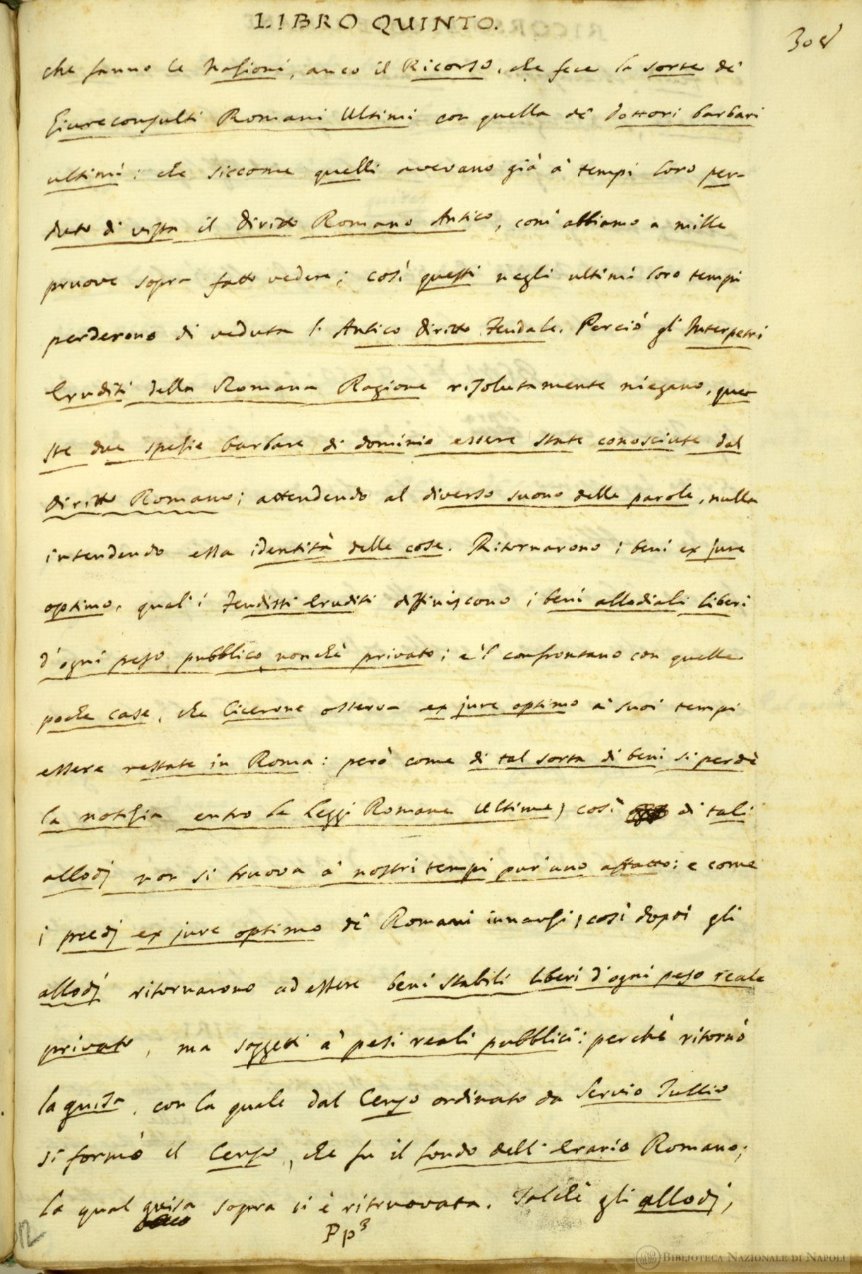 LIBRO QUINTO.
308
che fanno le Nasioni, anco il Ricorso, che fece la sorte de'
Giureconsulti Romani Ultimi con quella de' Dottori barbari
ultimi: che siccome quelli avevano già a' tempi loro per-
duto di vista il Diritto Romano Antico, com' abbiamo a mille
pruove sopra fatto vedere; così questi negli ultimi loro tempi
perderono di veduta l' Antico Diritto Feudale. Perciò gl' Interpetri
Eruditi della Romana Ragione risolutamente niegano, que-
ste due spesie barbare di dominio essere state conosciute dal
Diritto Romano; attendendo al diverso suono delle parole, nulla
intendendo essa identità delle cose. Ritornarono i beni ex jure
optimo, quali i Feudisti Eruditi diffiniscono i beni allodiali liberi
d' ogni peso pubblico nonchè privato; e 'l confrontano con quelle
poche case, che Cicerone osserva ex jure optimo a' suoi tempi
essere restate in Roma: però come di tal sorta di beni si perdè
la notisia entro le Leggi Romane Ultime; così di tali
allodj non si truova a' nostri tempi pur' uno affatto: e come
i predj ex jure optimo de' Romani innansi, così dopoi gli
allodj ritornarono ad essere beni stabili liberi d' ogni peso reale
privato, ma soggetti a' pesi reali pubblici: perchè ritornò
la guisa, con la quale dal Censo ordinato da Servio Tullio
si formò il Censo, che fu il fondo dell' Erario Romano;
la qual guisa sopra si è ritruovata. Talchè gli allodj,
Pp3
12
BIBLIOTECA NAZIONALE DI NAPOLI